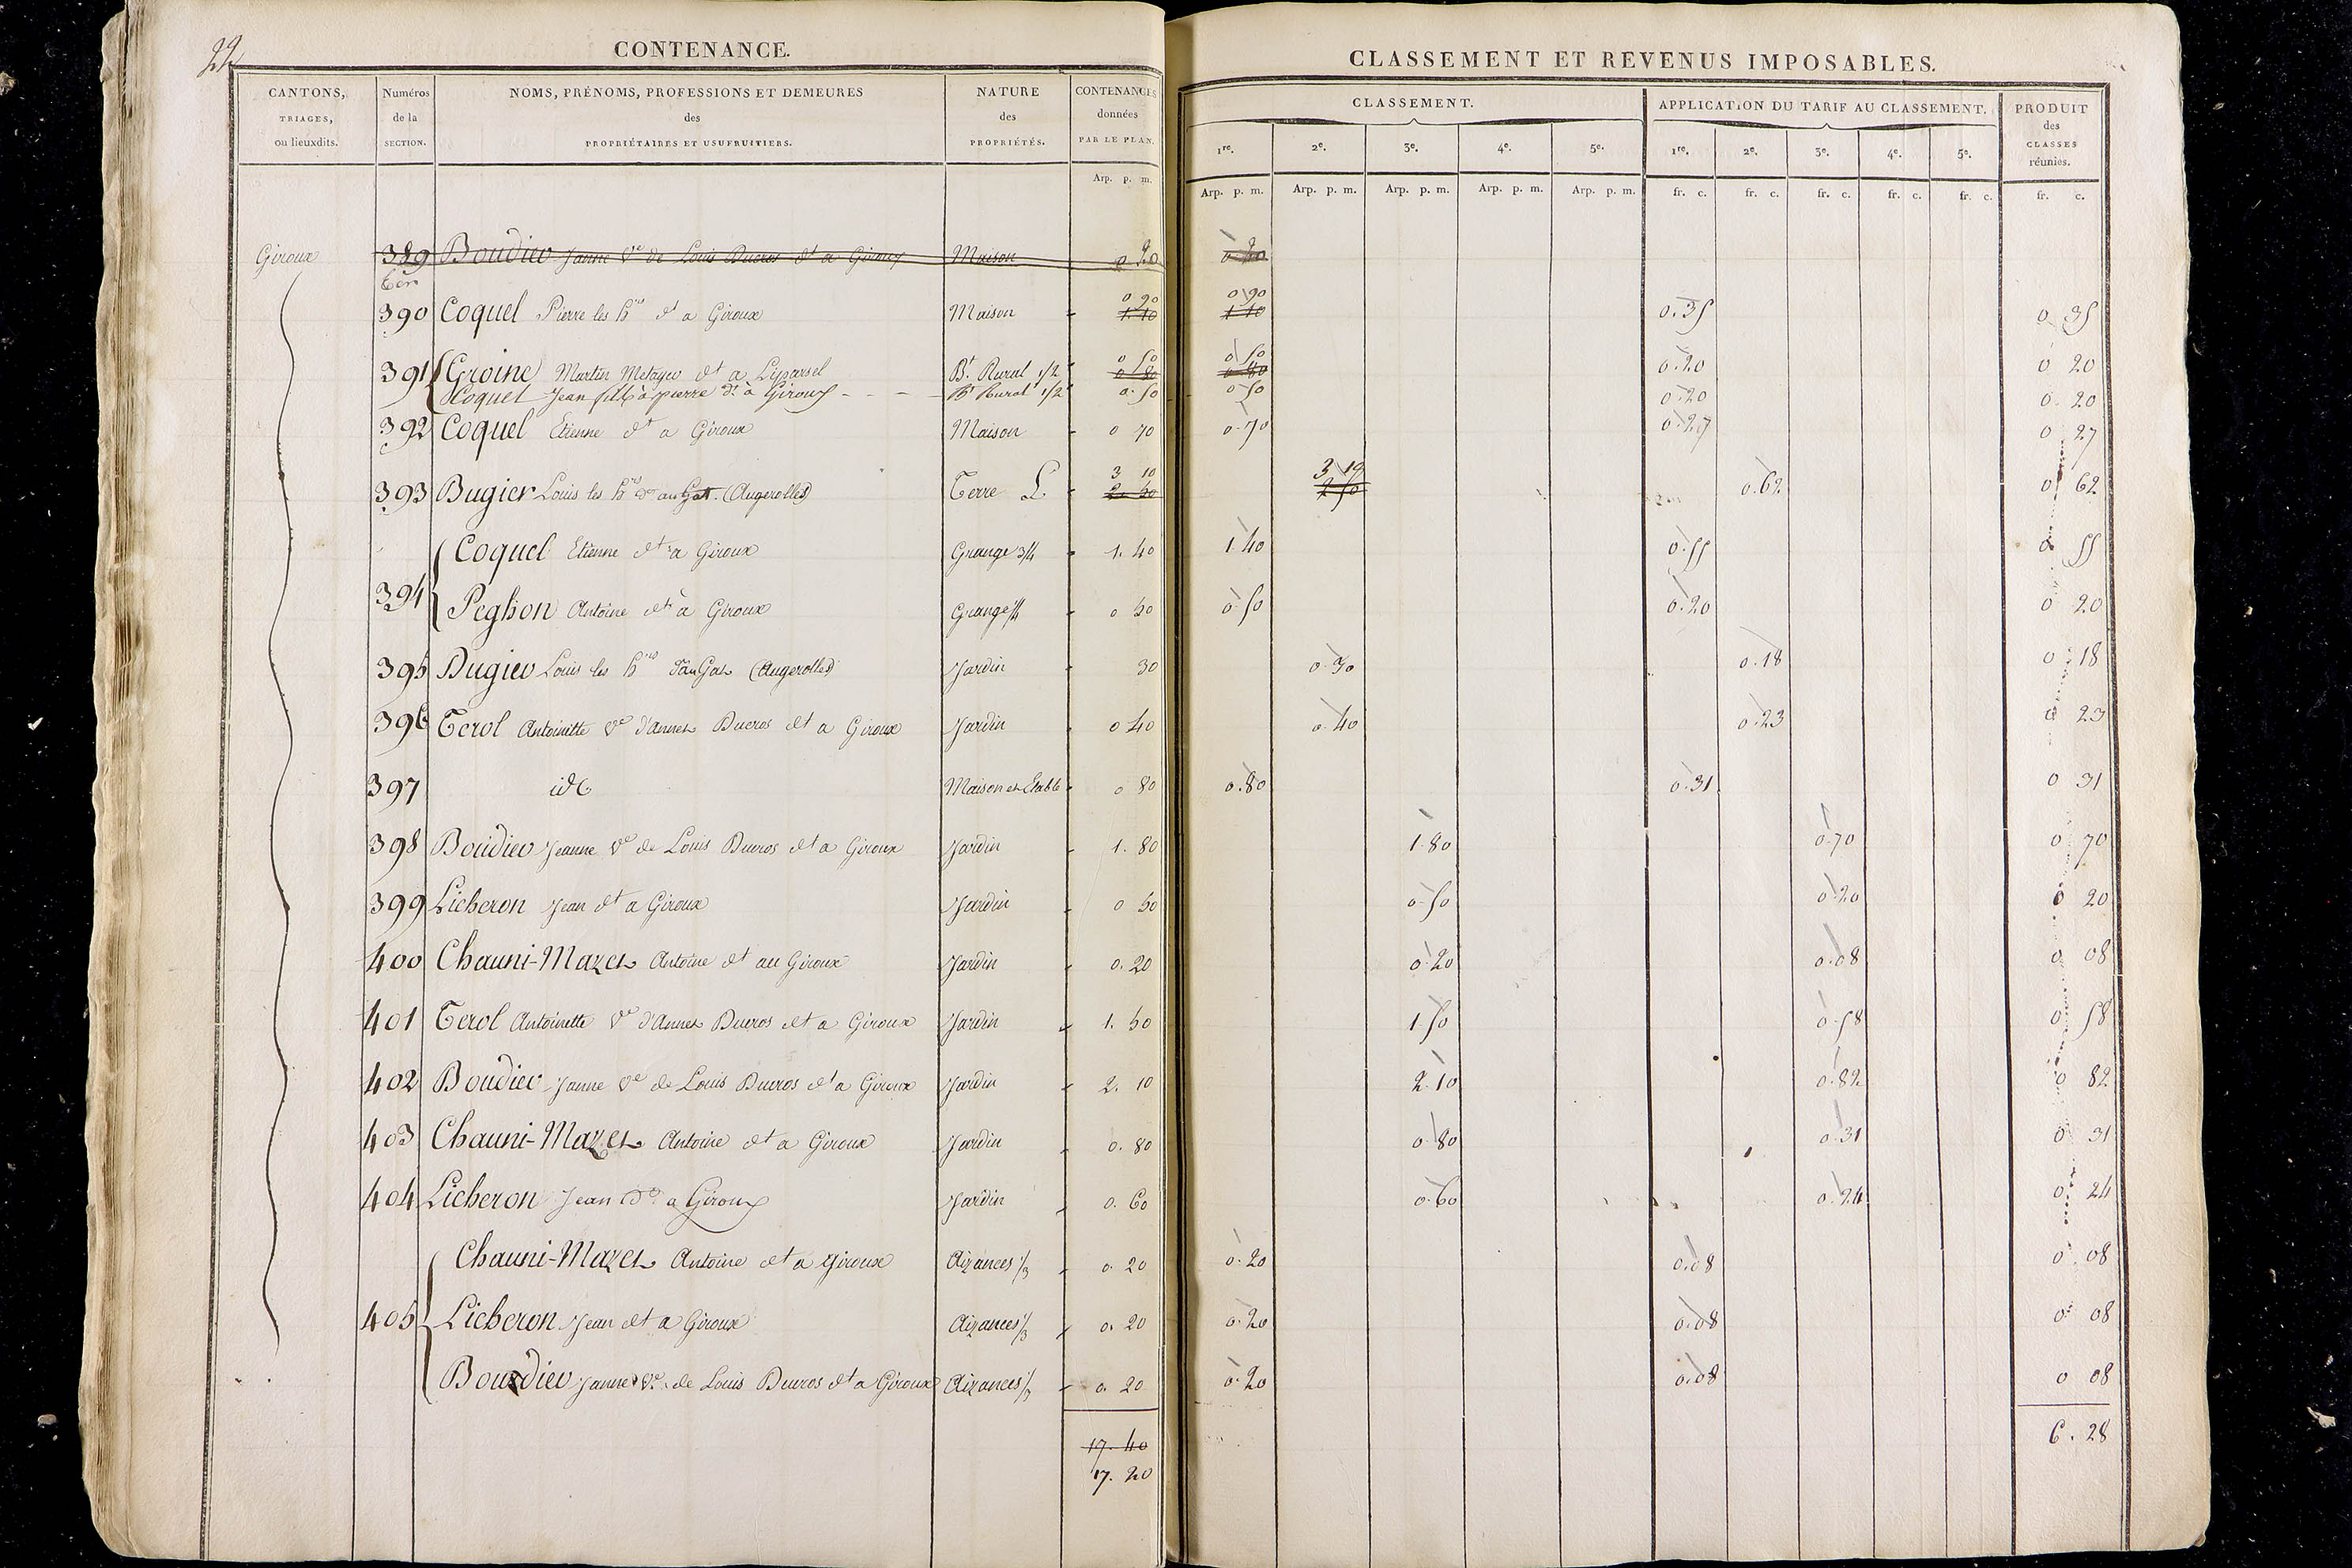 22
CONTENANCE.
CANTONS, TRIAGES, ou lieuxdits.
Numéros de la SECTION.
NOMS, PRÉNOMS, PROFESSIONS ET DEMEURES des PROPRIÉTAIRES ET USUFRUITIERS.
NATURE des PROPRIÉTÉS.
CONTENANCES données PAR LE PLAN.
Arp. p. m.
CLASSEMENT ET REVENUS IMPOSABLES.
CLASSEMENT.
APPLICATION DU TARIF AU CLASSEMENT.
PRODUIT des CLASSES réunies.
1re. 2e. 3e. 4e. 5e. 1re. 2e. 3e. 4e. 5e.
Arp. p. m. Arp. p. m. Arp. p. m. Arp. p. m. Arp. p. m. fr. c. fr. c. fr. c. fr. c. fr. c. fr. c.
Giroux 389 Boudieu Jeanne Ve de Louis Ducros dt a Giroux Maison 0 20
ter 0 90 0 90
390 Coquel Pierre les hrs dt a Giroux Maison 1. 10 1 10 0.35 0 35
0 50 0 50
391 Groine Martin Metayer dt a Bt. Rural 1/2 0 80 0 80 0.20 0 20
Coquel Jean fils à pierre dt. à Giroux Bt Rural 1/2 0. 50 0 50 0.20 0. 20
392 Coquel Etienne dt a Giroux Maison 0 70 0.70 0.27 0 27
3 10 3 10
393 Bugier Louis les hrs (Augerolles) Terre L 2. 50 2 50 0.62 0 62
Coquel Etienne dt a Giroux Grange 3/4 1. 40 1.40 0.55 0 55
394
Peghon Antoine dt à Giroux Grange 1/4 0 50 0.50 0.20 0 20
395 Bugier Louis les hrs (Augerolles) Jardin 30 0.30 0.18 0 18
396 Terol Antoinette Ve d'Annet Ducros dt a Giroux Jardin 0 40 0.40 0.23 0 23
397 id Maison et Etable 0 80 0.80 0.31 0 31
398 Boudieu Jeanne Ve de Louis Ducros dt a Giroux Jardin 1. 80 1.80 0.70 0 70
399 Licheron Jean dt a Giroux Jardin 0 50 0.50 0.20 0 20
400 Chauni-Mazet Antoine dt au Giroux Jardin 0. 20 0.20 0.08 0 08
401 Terol Antoinette Ve d'Annet Ducros dt a Giroux Jardin 1. 50 1.50 0.58 0 58
402 Boudieu Jeanne Ve de Louis Ducros dt a Giroux Jardin 2. 10 2.10 0.82 0 82
403 Chauni-Mazet Antoine dt a Giroux Jardin 0. 80 0.80 0.31 0 31
404 Licheron Jean do a Giroux Jardin 0. 60 0.60 0.24 0. 24
Chauni-Mazet Antoine dt a Giroux Aizances 1/3 0. 20 0.20 0.08 0. 08
405 Licheron Jean dt a Giroux Aizances 1/3 0. 20 0.20 0.08 0. 08
Bourdieu Jeanne Ve. de Louis Ducros dt a Giroux Aizances 1/3 0. 20 0.20 0.08 0 08
17. 40 6. 28
17. 20